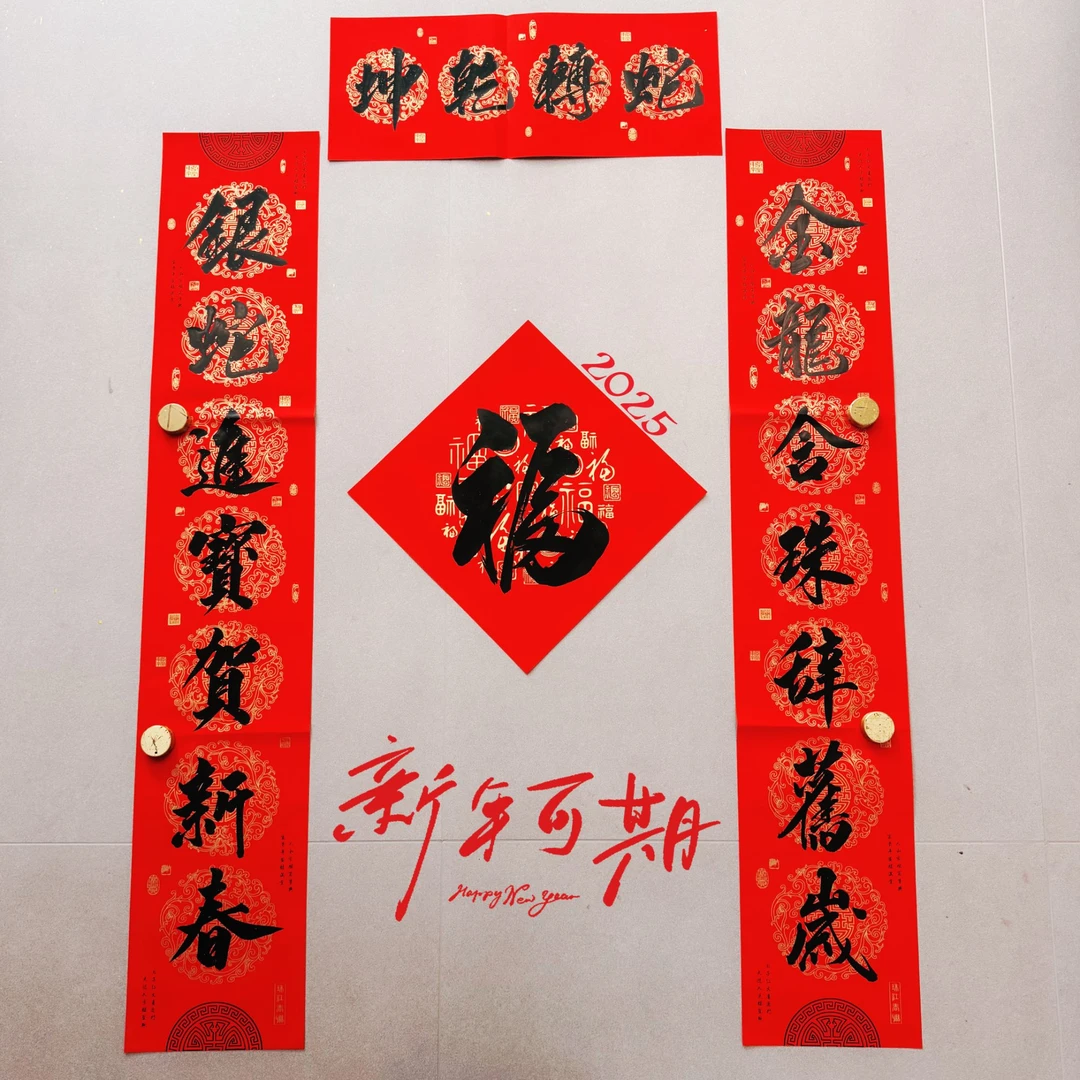 蛇轉乾坤
金龍含珠辞舊歲
銀蛇進寶賀新春
福
2025
新年可期
Happy New Year